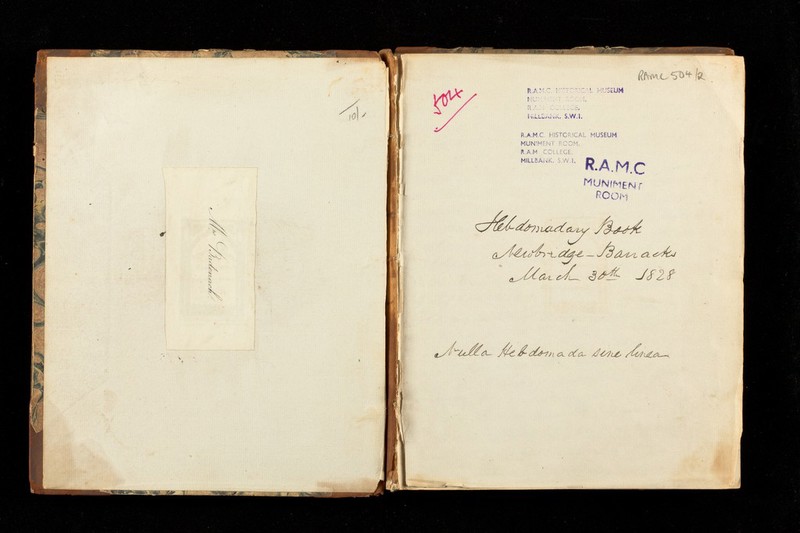 10/-
Mr.
RAMC 504/2
504
R.A.M.C. HISTORICAL MUSEUM
MUNIMENT ROOM.
R.A.M. COLLEGE.
MILLBANK. S.W.1.
R.A.M.C. HISTORICAL MUSEUM
MUNIMENT ROOM.
R.A.M. COLLEGE.
MILLBANK. S.W.1.
R.A.M.C
MUNIMENT
ROOM
Hebdomadary Book
Newbridge-Barracks
March 30th 1828
Nulla Hebdomada sine linea